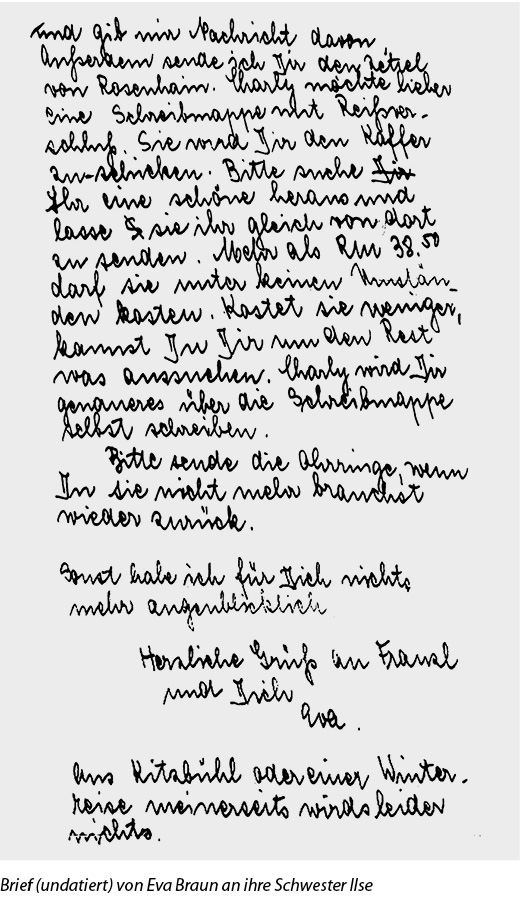 und gib mir Nachricht davon.
Außerdem sende ich Dir den Zettel
von Rosenhain. Charly möchte lieber
eine Schreibmappe mit Reißver-
schluß. Sie wird Dir den Koffer
zu-schicken. Bitte suche Dir
Ihr eine schöne heraus und
lasse sie ihr gleich von dort
zu senden. Mehr als RM 38.50
darf sie unter keinen Umstän-
den kosten. Kostet sie weniger,
kannst Du Dir um den Rest
was aussuchen. Charly wird Dir
genaueres über die Schreibmappe
selbst schreiben.
Bitte sende die Ohrringe, wenn
Du sie nicht mehr brauchst
wieder zurück.
Sonst habe ich für Dich nichts
mehr augenblicklich
Herzliche Grüß an Franzl
und Dich
Eva.
Aus Kitzbühl oder einer Winter-
reise meinerseits wirds leider
nichts.
Brief (undatiert) von Eva Braun an ihre Schwester Ilse